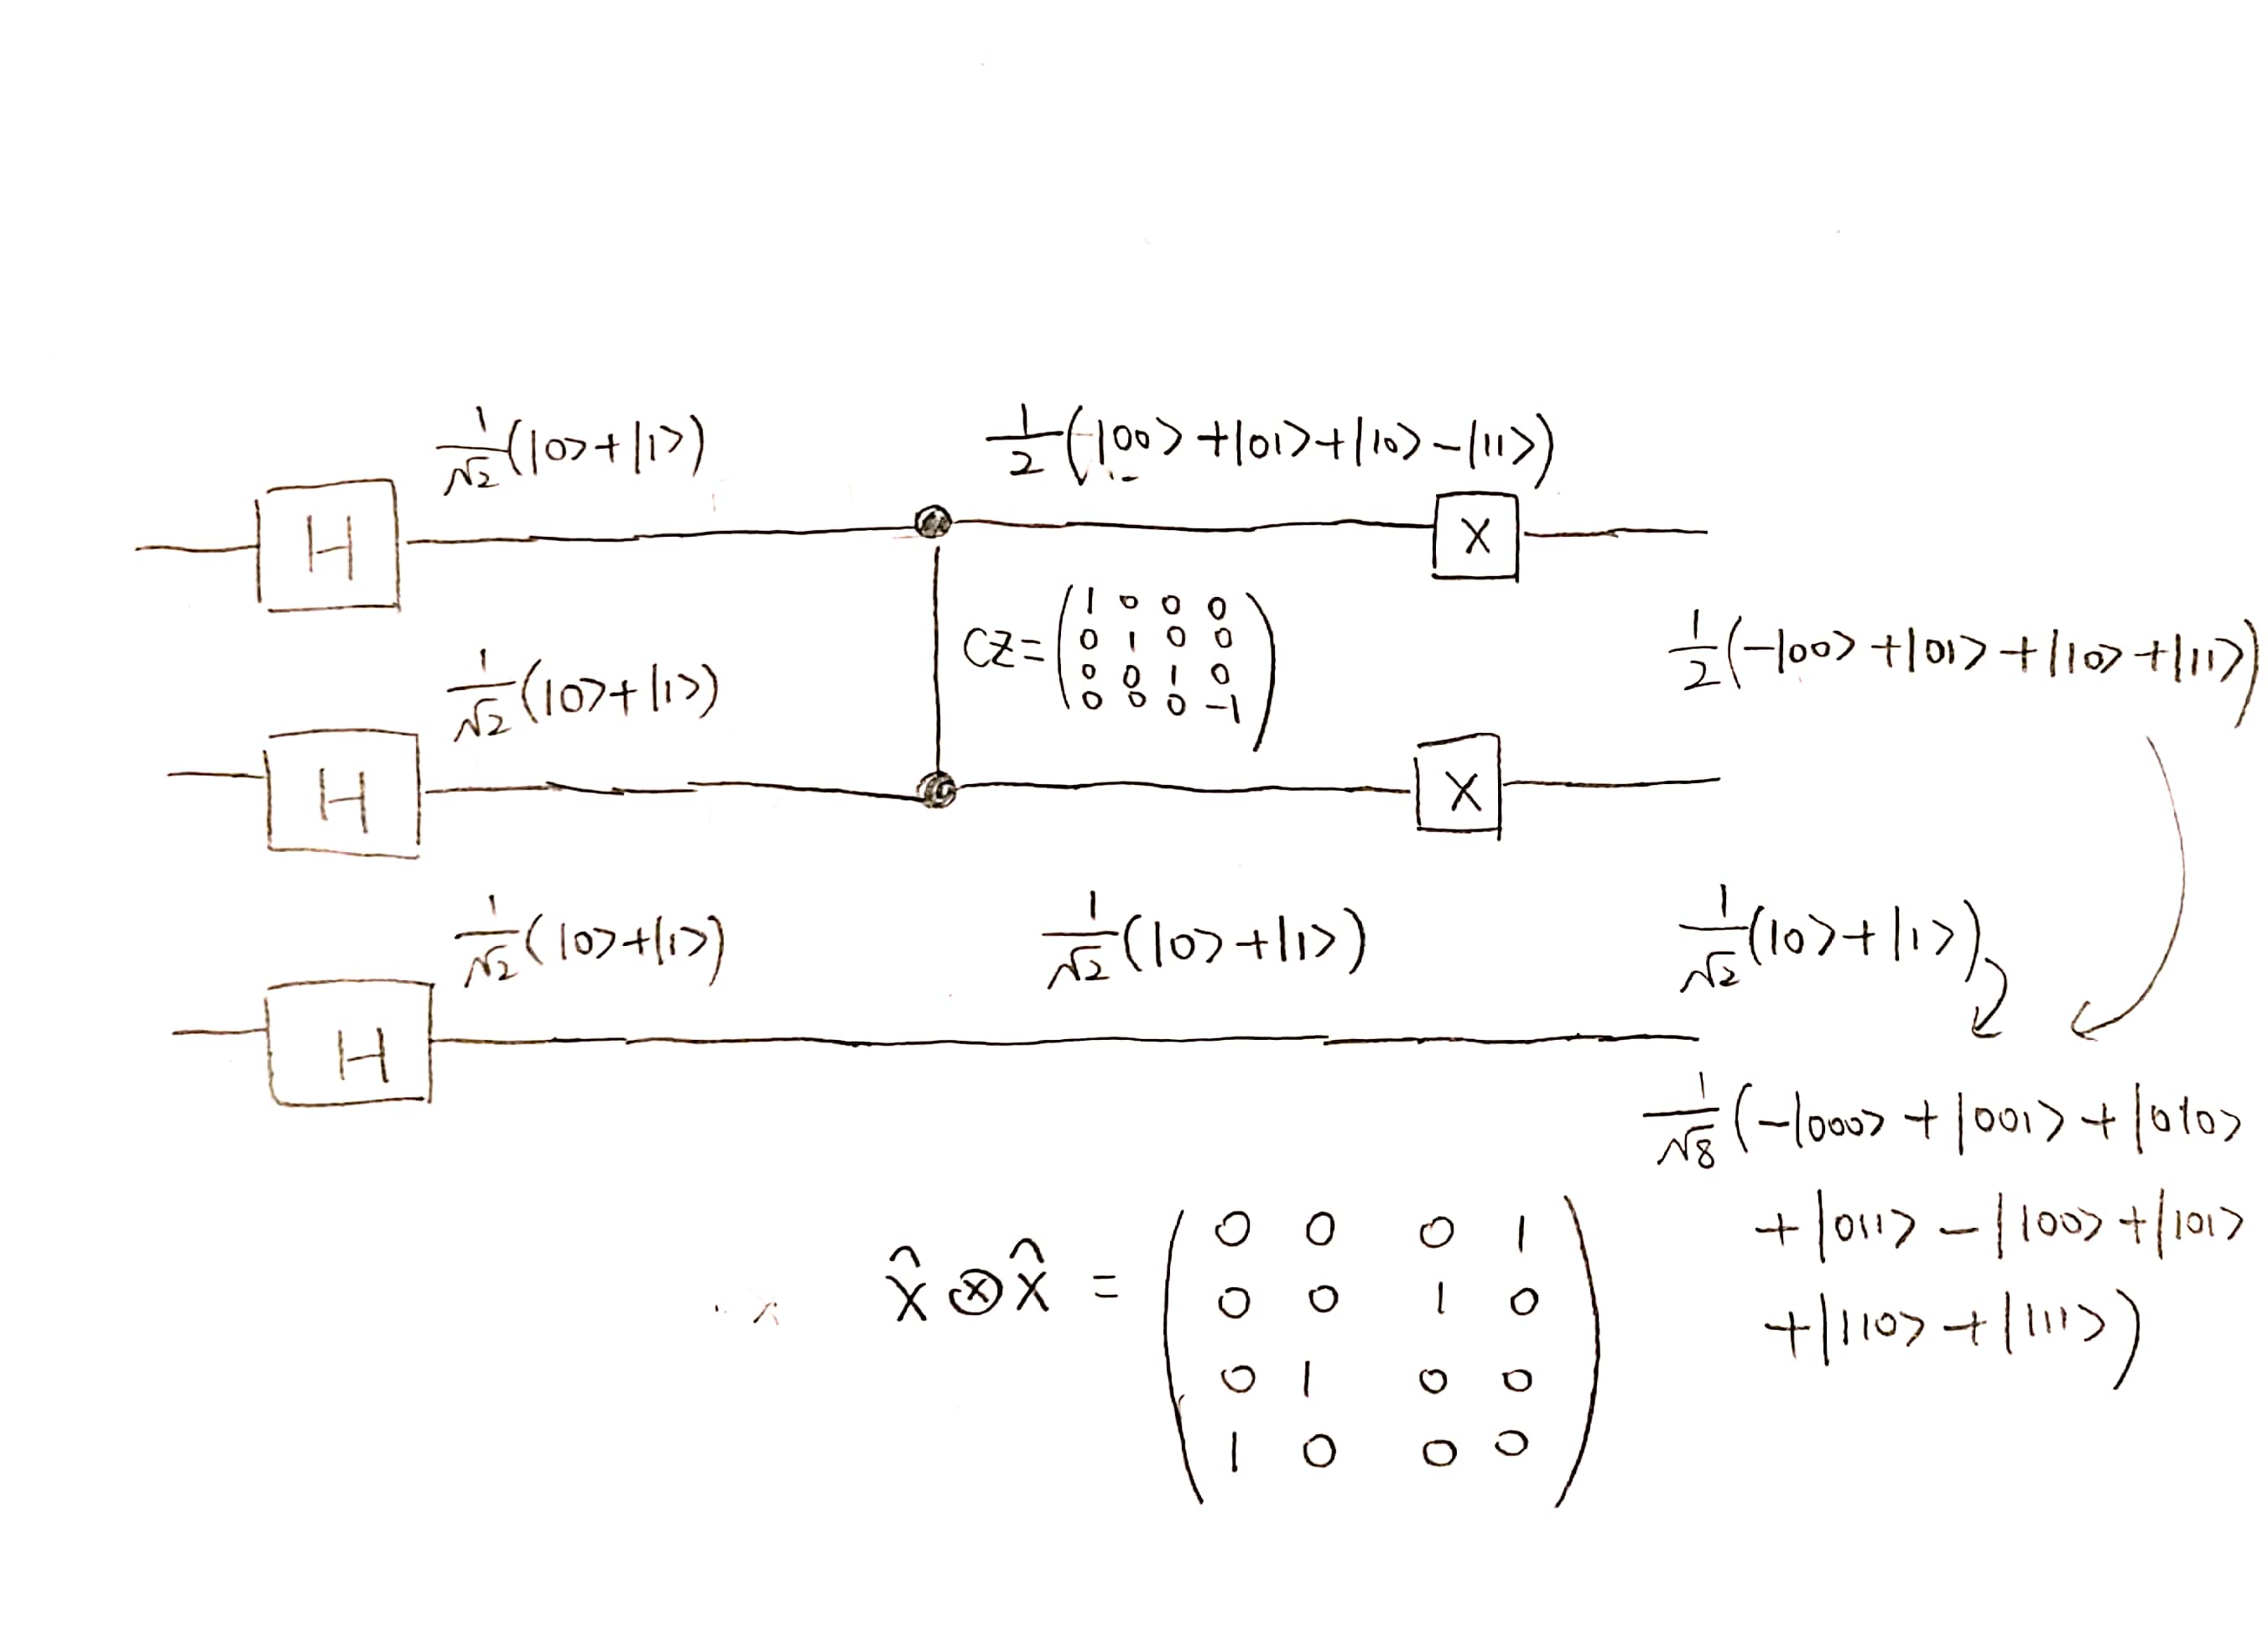 1/√2(|0>+|1>)
1/2(-|00>+|01>+|10>-|11>)
H
X
CZ=(1 0 0 0
0 1 0 0
0 0 1 0
0 0 0 -1)
1/√2(|0>+|1>)
1/2(-|00>+|01>+|10>+|11>)
H
X
1/√2(|0>+|1>)
1/√2(|0>+|1>)
1/√2(|0>+|1>)
H
1/√8(-|000>+|001>+|010>
+|011>-|100>+|101>
+|110>+|111>)
X̂⊗X̂=(0 0 0 1
0 0 1 0
0 1 0 0
1 0 0 0)